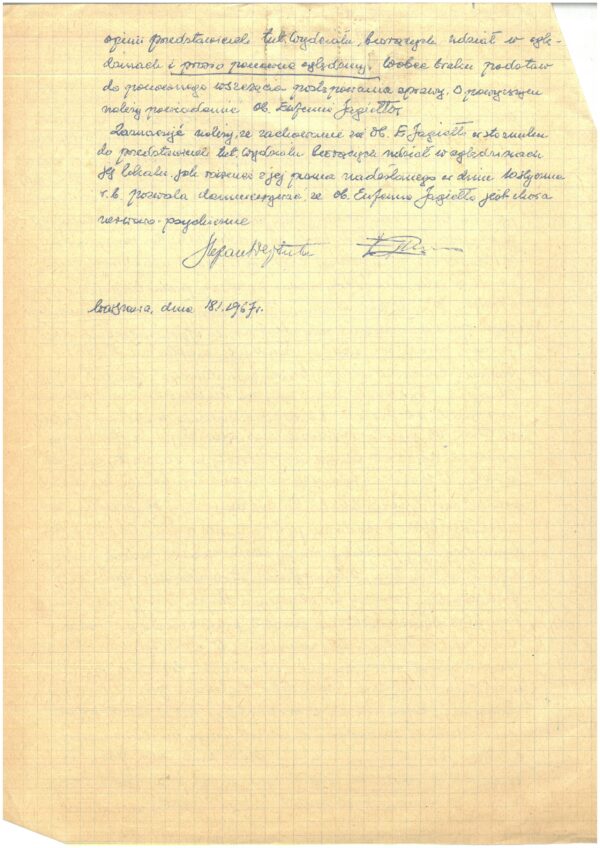 opinii przedstawicieli tut. Wydziału, biorących udział w oglę-
dzinach i prosi o ponowne oględziny. Wobec braku podstaw
do ponownego wszczęcia postępowania sprawy. O powyższym
należy powiadomić Ob. Eufemię Jagiełło,
Zaznaczyć należy, że zachowanie się Ob. E. Jagiełło w stosunku
do przedstawicieli tut. Wydziału biorących udział w oględzinach
jej lokalu jak również z jej pisma nadesłanego w dniu stycznia
r.b. pozwala domniemywać, że Ob. Eufemia Jagiełło jest chora
nerwowo-psychicznie
Stefan
Warszawa, dnia 18.I.1967r.